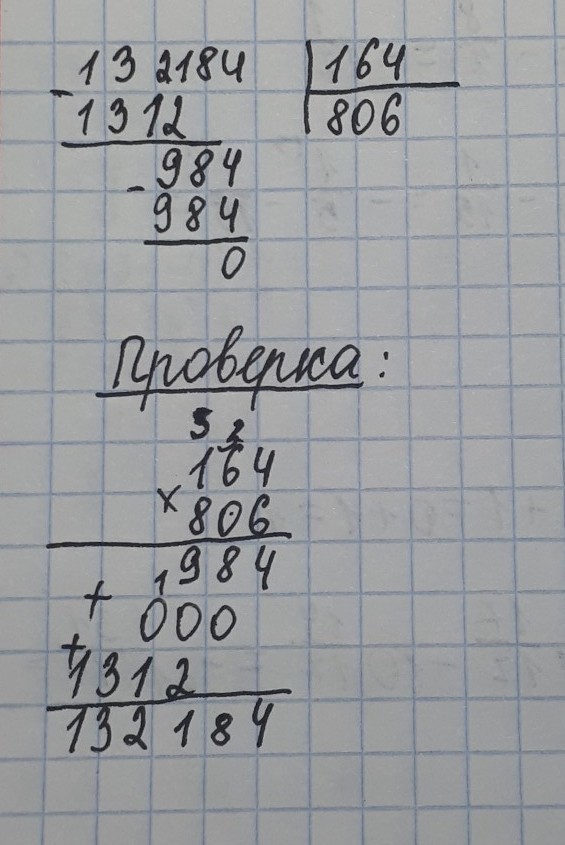 - 132184 | 164
1312 | 806
- 984
984
0
Проверка:
3 2
164
× 806
1 984
+ 000
+ 1312
132184